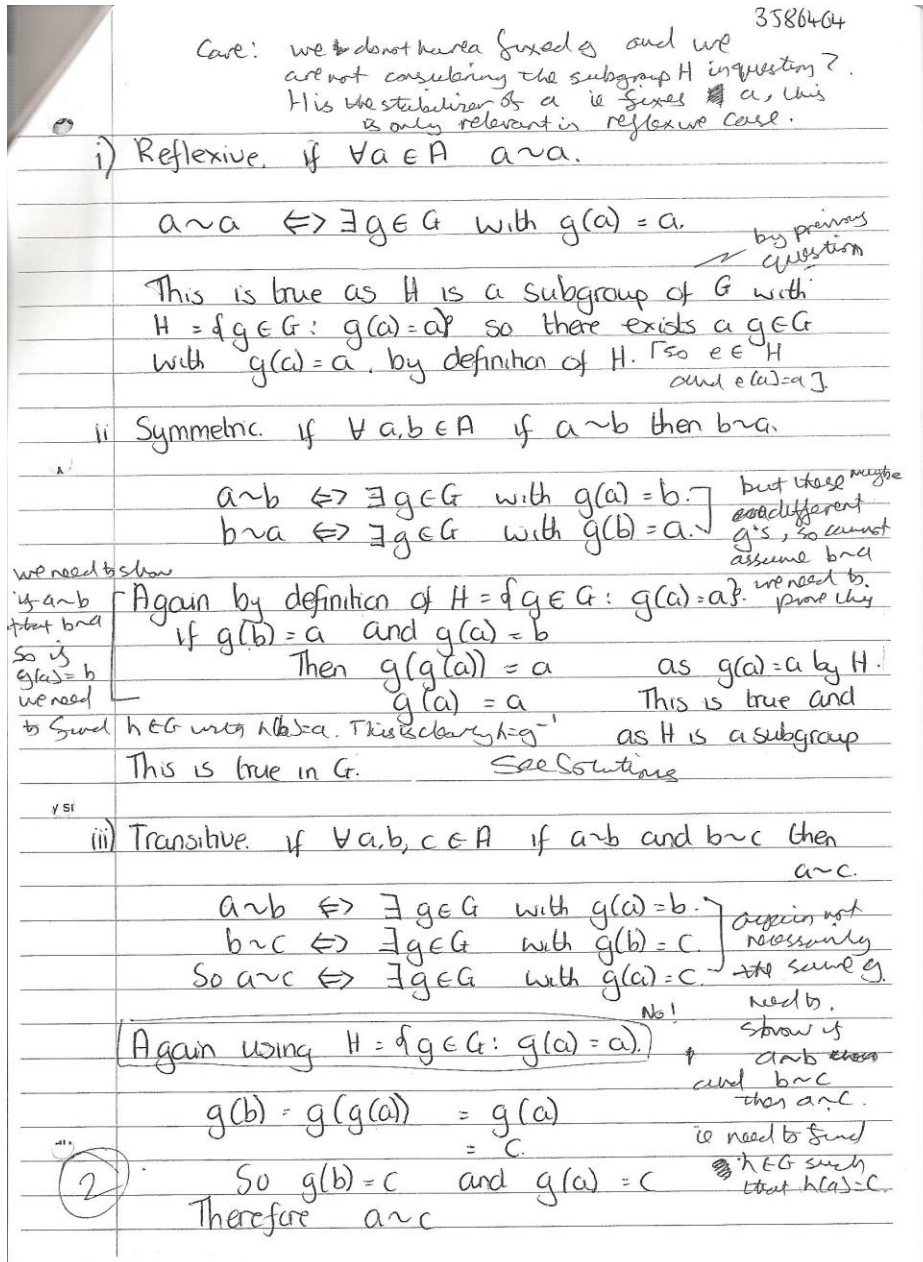 3586464
Care: we do not have a fixed g and we
are not considering the subgroup H in question 2.
H is the stabilizer of a ie fixes a, this
is only relevant in reflexive case.
i) Reflexive. if ∀a ∈ A a~a.
a~a ⇔ ∃g∈G with g(a) = a.
by previous
question
This is true as H is a subgroup of G with
H = {g ∈ G : g(a) = a} so there exists a g∈G
with g(a) = a, by definition of H. [so e ∈ H
and e(a)=a].
ii Symmetric. if ∀ a,b ∈ A if a~b then b~a.
a~b ⇔ ∃g∈G with g(a) = b.
b~a ⇔ ∃g∈G with g(b) = a.
but these maybe
different
g's, so cannot
assume b~a
we need to
prove this
we need to show
if a~b
that b~a
So if
g(a) = b
we need
to find h∈G with h(b)=a. This is clearly h=g⁻¹
Again by definition of H = {g ∈ G : g(a) = a}.
if g(b) = a and g(a) = b
Then g(g(a)) = a as g(a) = a by H.
g(a) = a This is true and
as H is a subgroup
This is true in G. See Solutions
iii) Transitive. if ∀ a,b, c ∈ A if a~b and b~c then
a~c.
a~b ⇔ ∃ g∈G with g(a) = b.
b~c ⇔ ∃g∈G with g(b) = c.
So a~c ⇔ ∃g∈G with g(a) = c.
again not
necessarily
the same g.
need to.
show if
a~b
and b~c
then a~c.
ie need to find
h∈G such
that h(a)=c.
No!
Again using H = {g ∈ G : g(a) = a).
g(b) = g(g(a)) = g(a)
= c.
So g(b) = c and g(a) = c
Therefore a~c
2